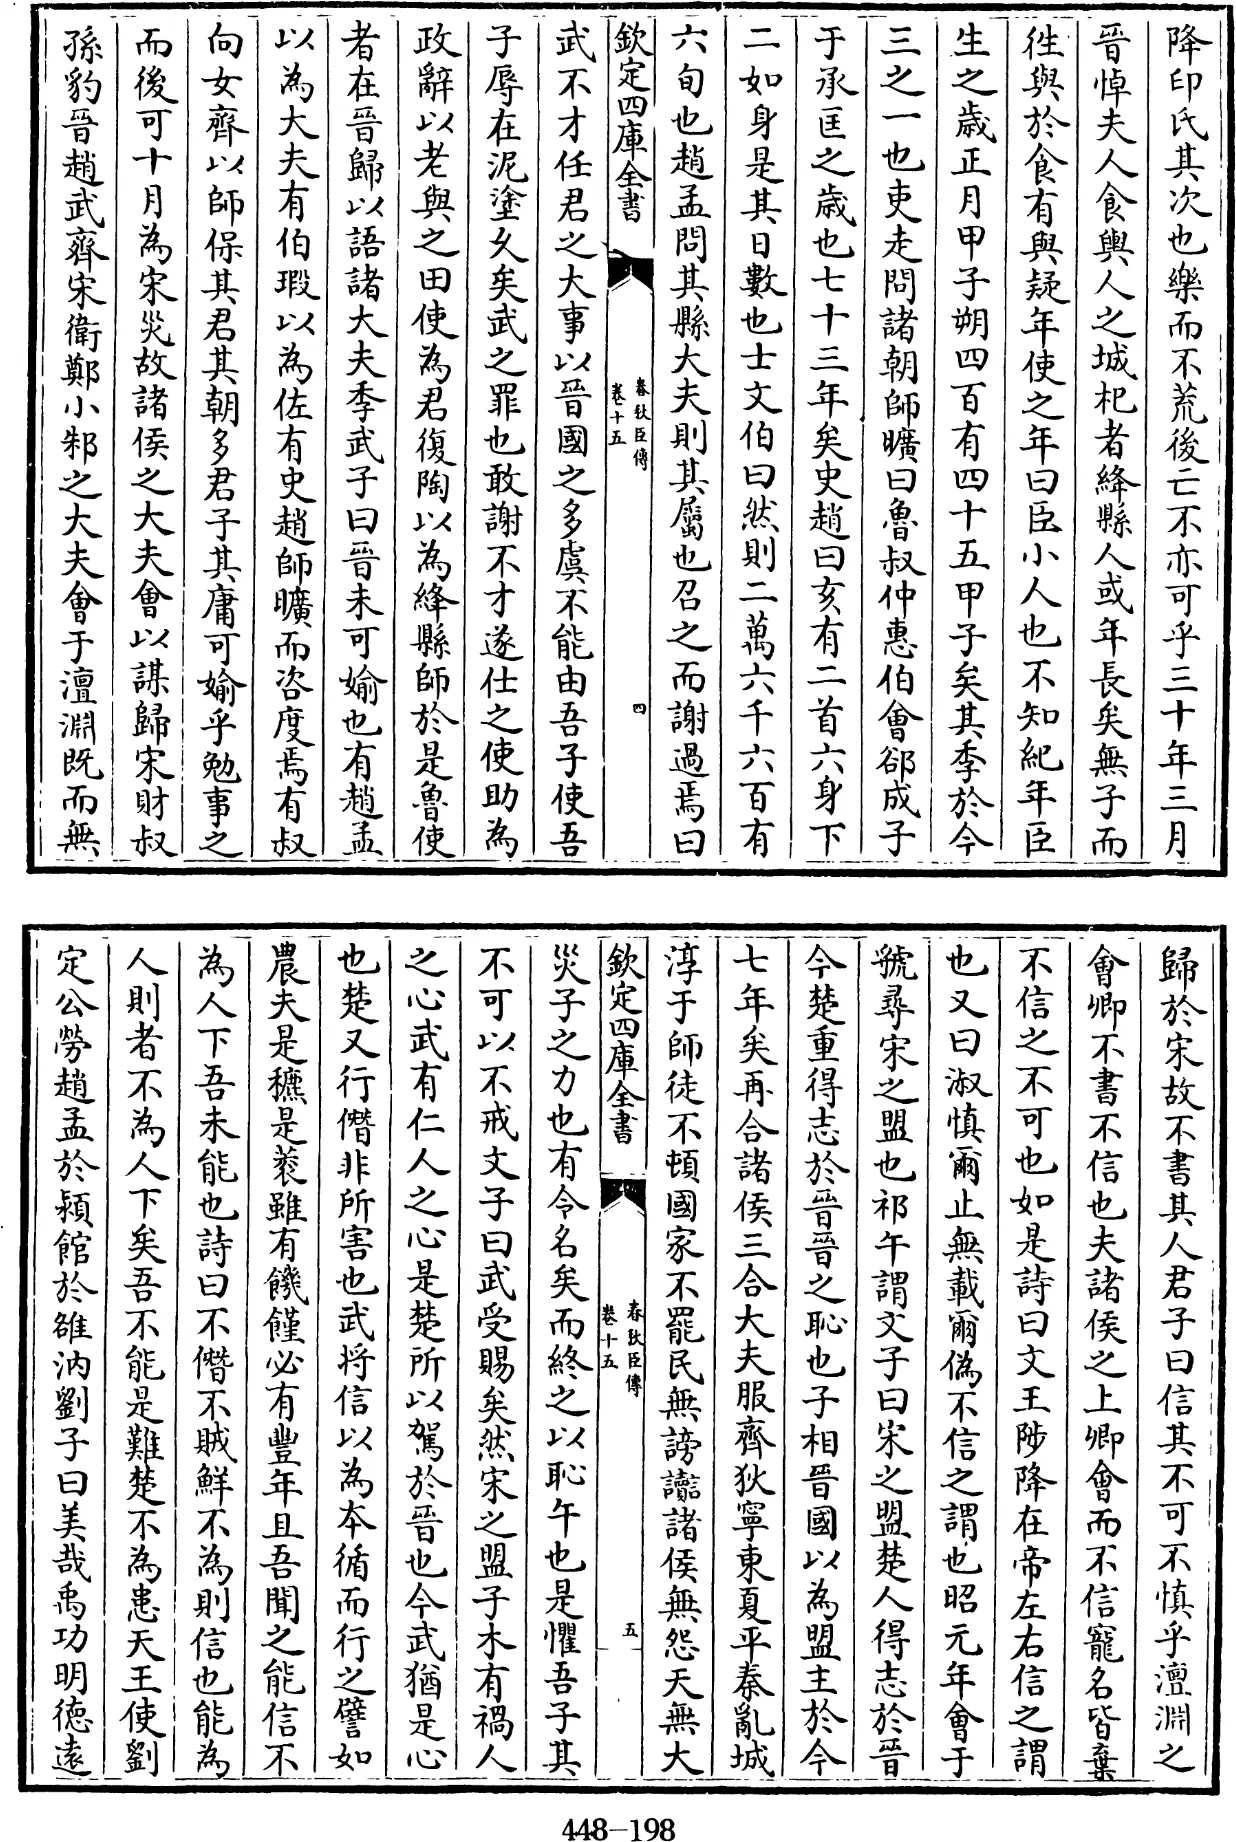 降印氏其次也樂而不荒後亡不亦可乎三十年三月
晉悼夫人食輿人之城杞者絳縣人或年長矣無子而
徃與於食有與疑年使之年曰臣小人也不知紀年臣
生之歲正月甲子朔四百有四十五甲子矣其季於今
三之一也吏走問諸朝師曠曰魯叔仲惠伯會郤成子
于承匡之歲也七十三年矣史趙曰亥有二首六身下
二如身是其日數也士文伯曰然則二萬六千六百有
六旬也趙孟問其縣大夫則其屬也召之而謝過焉曰
欽定四庫全書
春秋臣傳
卷十五
四
武不才任君之大事以晉國之多虞不能由吾子使吾
子辱在泥塗久矣武之罪也敢謝不才遂仕之使助為
政辭以老與之田使為君復陶以為絳縣師於是魯使
者在晉歸以語諸大夫季武子曰晉未可媮也有趙孟
以為大夫有伯瑕以為佐有史趙師曠而咨度焉有叔
向女齊以師保其君其朝多君子其庸可媮乎勉事之
而後可十月為宋災故諸侯之大夫會以謀歸宋財叔
孫豹晉趙武齊宋衛鄭小邾之大夫會于澶淵既而無
歸於宋故不書其人君子曰信其不可不慎乎澶淵之
會卿不書不信也夫諸侯之上卿會而不信寵名皆棄
不信之不可也如是詩曰文王陟降在帝左右信之謂
也又曰淑慎爾止無載爾偽不信之謂也昭元年會于
虢尋宋之盟也祁午謂文子曰宋之盟楚人得志於晉
今楚重得志於晉晉之恥也子相晉國以為盟主於今
七年矣再合諸侯三合大夫服齊狄寧東夏平秦亂城
淳于師徒不頓國家不罷民無謗讟諸侯無怨天無大
欽定四庫全書
春秋臣傳
卷十五
五
災子之力也有令名矣而終之以恥午也是懼吾子其
不可以不戒文子曰武受賜矣然宋之盟子木有禍人
之心武有仁人之心是楚所以駕於晉也今武猶是心
也楚又行僭非所害也武将信以為本循而行之譬如
農夫是穮是蓘雖有饑饉必有豐年且吾聞之能信不
為人下吾未能也詩曰不僭不賊鮮不為則信也能為
人則者不為人下矣吾不能是難楚不為患天王使劉
定公勞趙孟於潁館於雒汭劉子曰美哉禹功明德遠
448-198